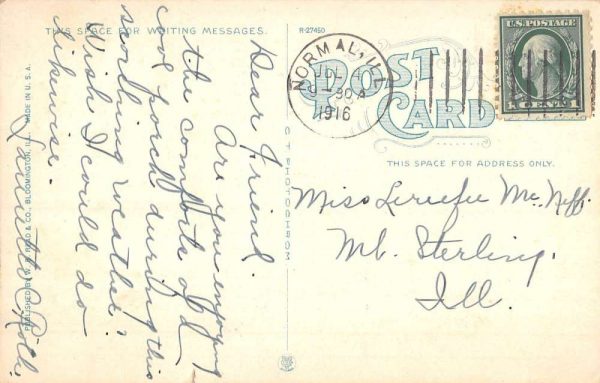 THIS SPACE FOR WRITING MESSAGES.
R-27450
Dear Friend.
Are you enjoying
the comforts of a
cool porch during this
scorching weather?
Wish I could do
likewise.
PUBLISHED BY W. B. READ & CO., BLOOMINGTON, ILL. MADE IN U.S.A.
C.T. PHOTOCHROM
POST
CARD
THIS SPACE FOR ADDRESS ONLY.
NORMAL, ILL.
JUL
1916
U.S. POSTAGE
1 CENT 1
Miss Mc Neff.
Mt. Sterling.
Ill.